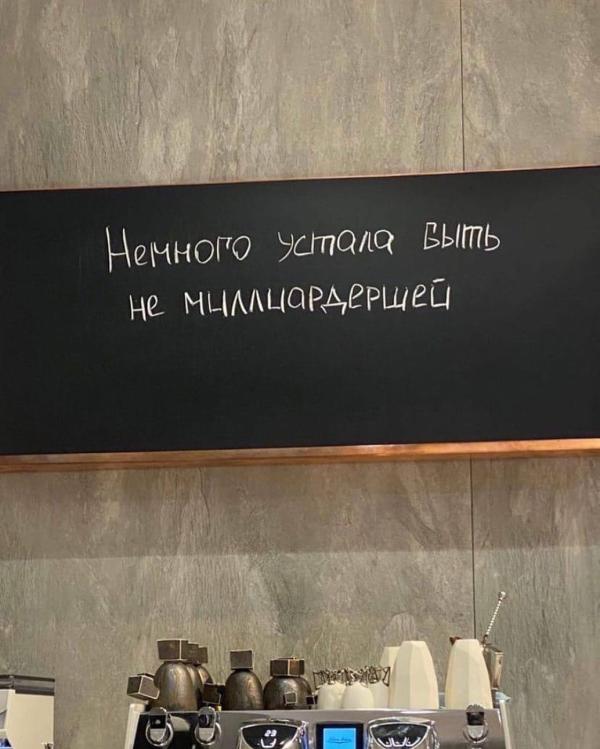 Немного устала быть
не миллиардершей
29